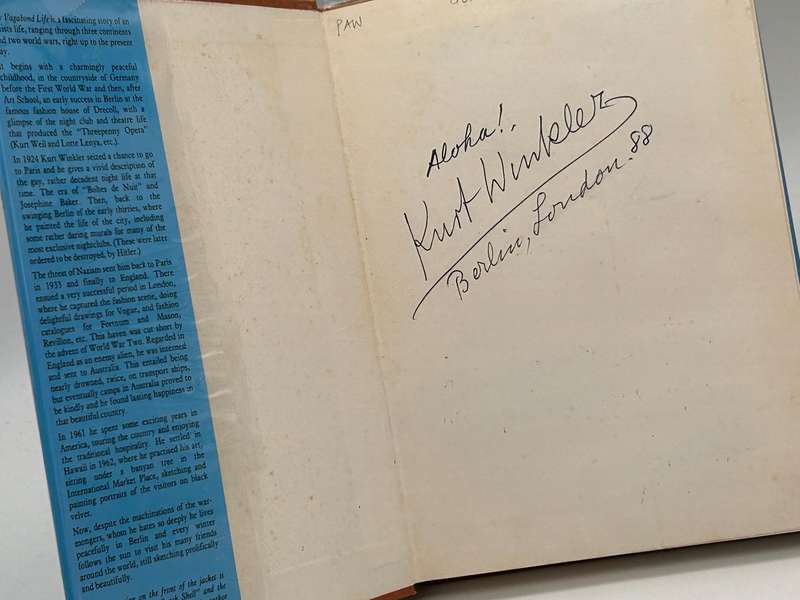 Vagabond Life is a fascinating story of an
life, ranging through three continents
two world wars, right up to the present
begins with a charmingly peaceful
childhood, in the countryside of Germany
before the First World War and then, after
Art School, an early success in Berlin at the
famous fashion house of Drecoll, with a
glimpse of the night club and theatre life
that produced the "Threepenny Opera"
(Kurt Weil and Lotte Lenya, etc.).
In 1924 Kurt Winkler seized a chance to go
to Paris and he gives a vivid description of
the gay, rather decadent night life at that
time. The era of "Boîtes de Nuit" and
Josephine Baker. Then, back to the
swinging Berlin of the early thirties, where
he painted the life of the city, including
some rather daring murals for many of the
most exclusive nightclubs. (These were later
ordered to be destroyed, by Hitler.)
The threat of Nazism sent him back to Paris
in 1933 and finally to England. There
ensued a very successful period in London,
where he captured the fashion scene, doing
delightful drawings for Vogue, and fashion
catalogues for Fortnum and Mason,
Revillon, etc. This haven was cut short by
the advent of World War Two. Regarded in
England as an enemy alien, he was interned
and sent to Australia. This entailed being
nearly drowned, twice, on transport ships,
but eventually camps in Australia proved to
be kindly and he found lasting happiness in
that beautiful country.
In 1961 he spent some exciting years in
America, touring the country and enjoying
the traditional hospitality. He settled in
Hawaii in 1962, where he practised his art,
sitting under a banyan tree in the
International Market Place, sketching and
painting portraits of the visitors on black
velver.
Now, despite the machinations of the war-
mongers, whom he hates so deeply he lives
peacefully in Berlin and every winter
follows the sun to visit his many friends
around the world, still sketching prolifically
and beautifully.
on the front of the jacket is
Shell" and the
PAW
Aloha!.
Kurt Winkler
Berlin, London. 88